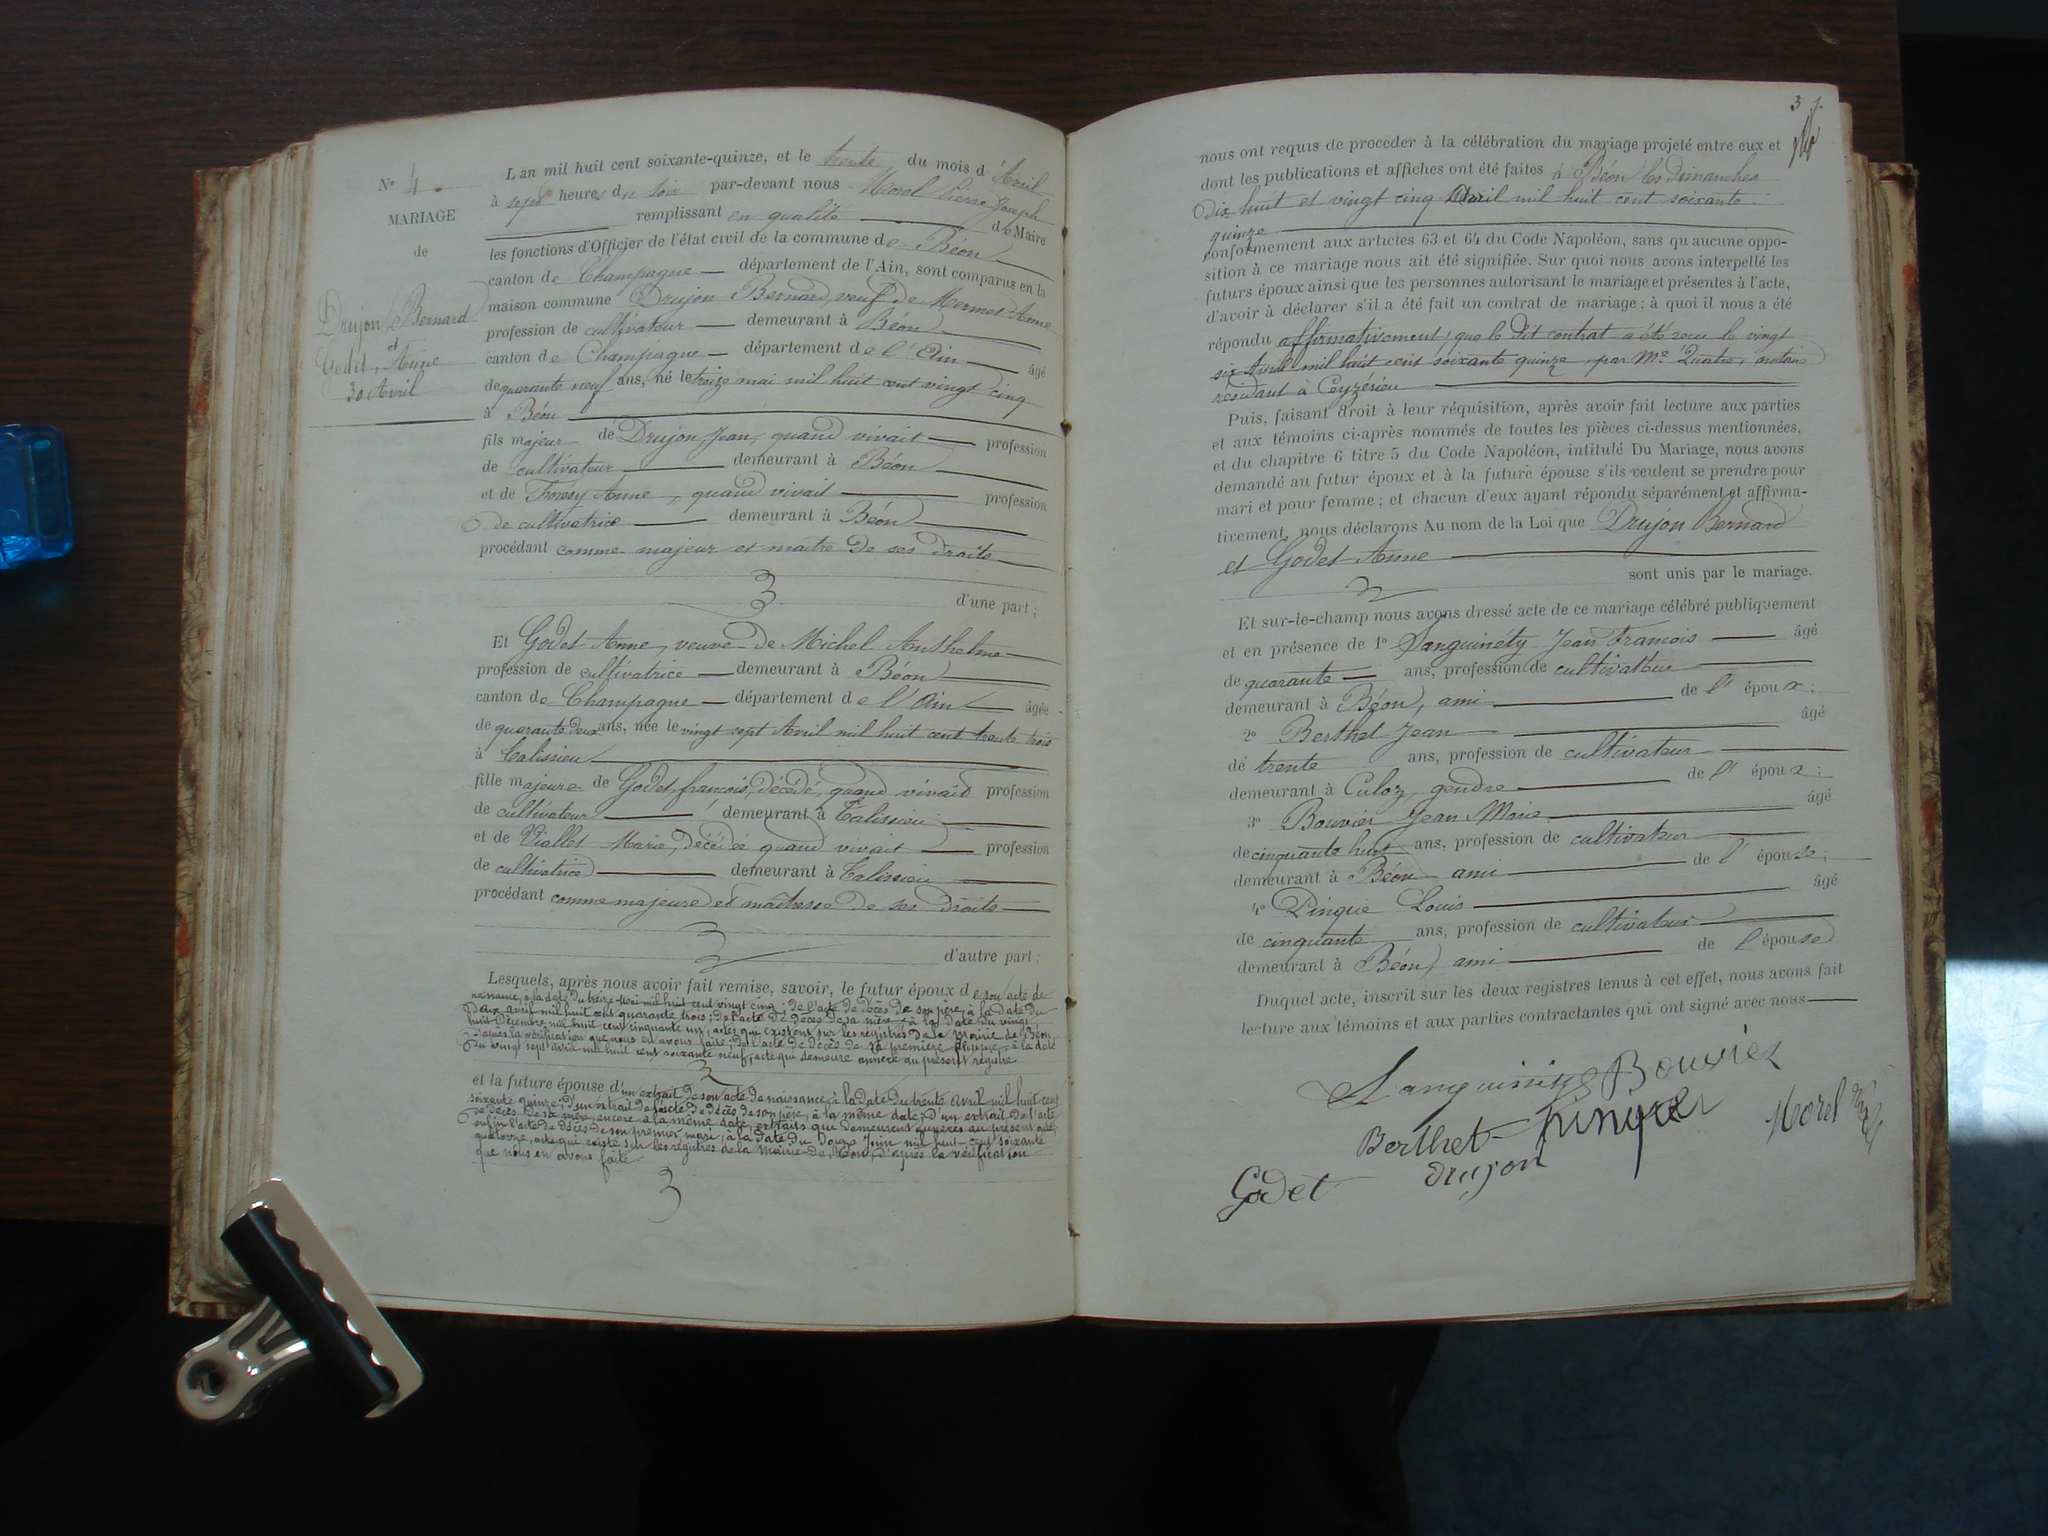 N° 4
MARIAGE
de
Drujon Bernard
et
Godet Anne
30 Avril
L'an mil huit cent soixante-quinze, et le trente du mois d'Avril
à sept heures du soir par-devant nous Morel Pierre Joseph
remplissant en qualité de Maire
les fonctions d'Officier de l'état civil de la commune de Béon
canton de Champagne département de l'Ain, sont comparus en la
maison commune Drujon Bernard, veuf de Mermet Anne
profession de cultivateur demeurant à Béon
canton de Champagne département de l'Ain âgé
de quarante neuf ans, né le treize mai mil huit cent vingt cinq
à Béon
fils majeur de Drujon Jean, quand vivait profession
de cultivateur demeurant à Béon
et de Anne, quand vivait profession
de cultivatrice demeurant à Béon
procédant comme majeur et maître de ses droits
d'une part ;
Et Godet Anne, veuve de Michel Anthelme
profession de cultivatrice demeurant à Béon
canton de Champagne département de l'Ain âgée
de quarante deux ans, née le vingt sept Avril mil huit cent trente trois
à Talissieu
fille majeure de Godet françois, décédé, quand vivait profession
de cultivateur demeurant à Talissieu
et de Viallet Marie, décédée quand vivait profession
de cultivatrice demeurant à Talissieu
procédant comme majeure et maîtresse de ses droits
d'autre part ;
Lesquels, après nous avoir fait remise, savoir, le futur époux de son acte de
naissance, à la date du treize mai mil huit cent vingt cinq ; de l'acte de décès de son père, à la date du
deux avril mil huit cent quarante trois ; de l'acte de décès de sa mère, à la date du vingt
huit Décembre mil huit cent cinquante un, actes qui existent sur les registres de la Mairie de Béon,
d'après la vérification que nous en avons faite ; de l'acte de décès de sa première femme, à la date
du vingt sept avril mil huit cent soixante neuf, acte qui demeure annexé au présent registre
et la future épouse d'un extrait de son acte de naissance, à la date du trente avril mil huit cent
soixante quinze, d'un extrait de l'acte de décès de son père, à la même date ; d'un extrait de l'acte
de décès de sa mère, encore à la même date, extraits qui demeurent annexés au présent acte,
enfin l'acte de décès de son premier mari, à la date du douze Juin mil huit cent soixante
quatorze, acte qui existe sur les registres de la Mairie de Béon, d'après la vérification
que nous en avons faite
nous ont requis de procéder à la célébration du mariage projeté entre eux et
dont les publications et affiches ont été faites à Béon les Dimanches
dix huit et vingt cinq Avril mil huit cent soixante
quinze
conformément aux articles 63 et 64 du Code Napoléon, sans qu'aucune oppo-
sition à ce mariage nous ait été signifiée. Sur quoi nous avons interpellé les
futurs époux ainsi que les personnes autorisant le mariage et présentes à l'acte,
d'avoir à déclarer s'il a été fait un contrat de mariage ; à quoi il nous a été
répondu affirmativement, que le dit contrat a été reçu le vingt
six Avril mil huit cent soixante quinze par Me Quatre, notaire
résidant à Ceyzérieu
Puis, faisant droit à leur réquisition, après avoir fait lecture aux parties
et aux témoins ci-après nommés de toutes les pièces ci-dessus mentionnées,
et du chapitre 6 titre 5 du Code Napoléon, intitulé Du Mariage, nous avons
demandé au futur époux et à la future épouse s'ils veulent se prendre pour
mari et pour femme ; et chacun d'eux ayant répondu séparément et affirma-
tivement, nous déclarons Au nom de la Loi que Drujon Bernard
et Godet Anne
sont unis par le mariage.
Et sur-le-champ nous avons dressé acte de ce mariage célébré publiquement
et en présence de 1° Sanguinéty Jean François âgé
de quarante ans, profession de cultivateur
demeurant à Béon, ami de l'époux ;
2° Berthet Jean âgé
de trente ans, profession de cultivateur
demeurant à Culoz, gendre de l'époux ;
3° Bouvier Jean Marie âgé
de cinquante huit ans, profession de cultivateur
demeurant à Béon ami de l'épouse ;
4° Pinque Louis âgé
de cinquante ans, profession de cultivateur
demeurant à Béon, ami de l'épouse
Duquel acte, inscrit sur les deux registres tenus à cet effet, nous avons fait
lecture aux témoins et aux parties contractantes qui ont signé avec nous
Bouvier
Berthet
Morel
Drujon
Godet